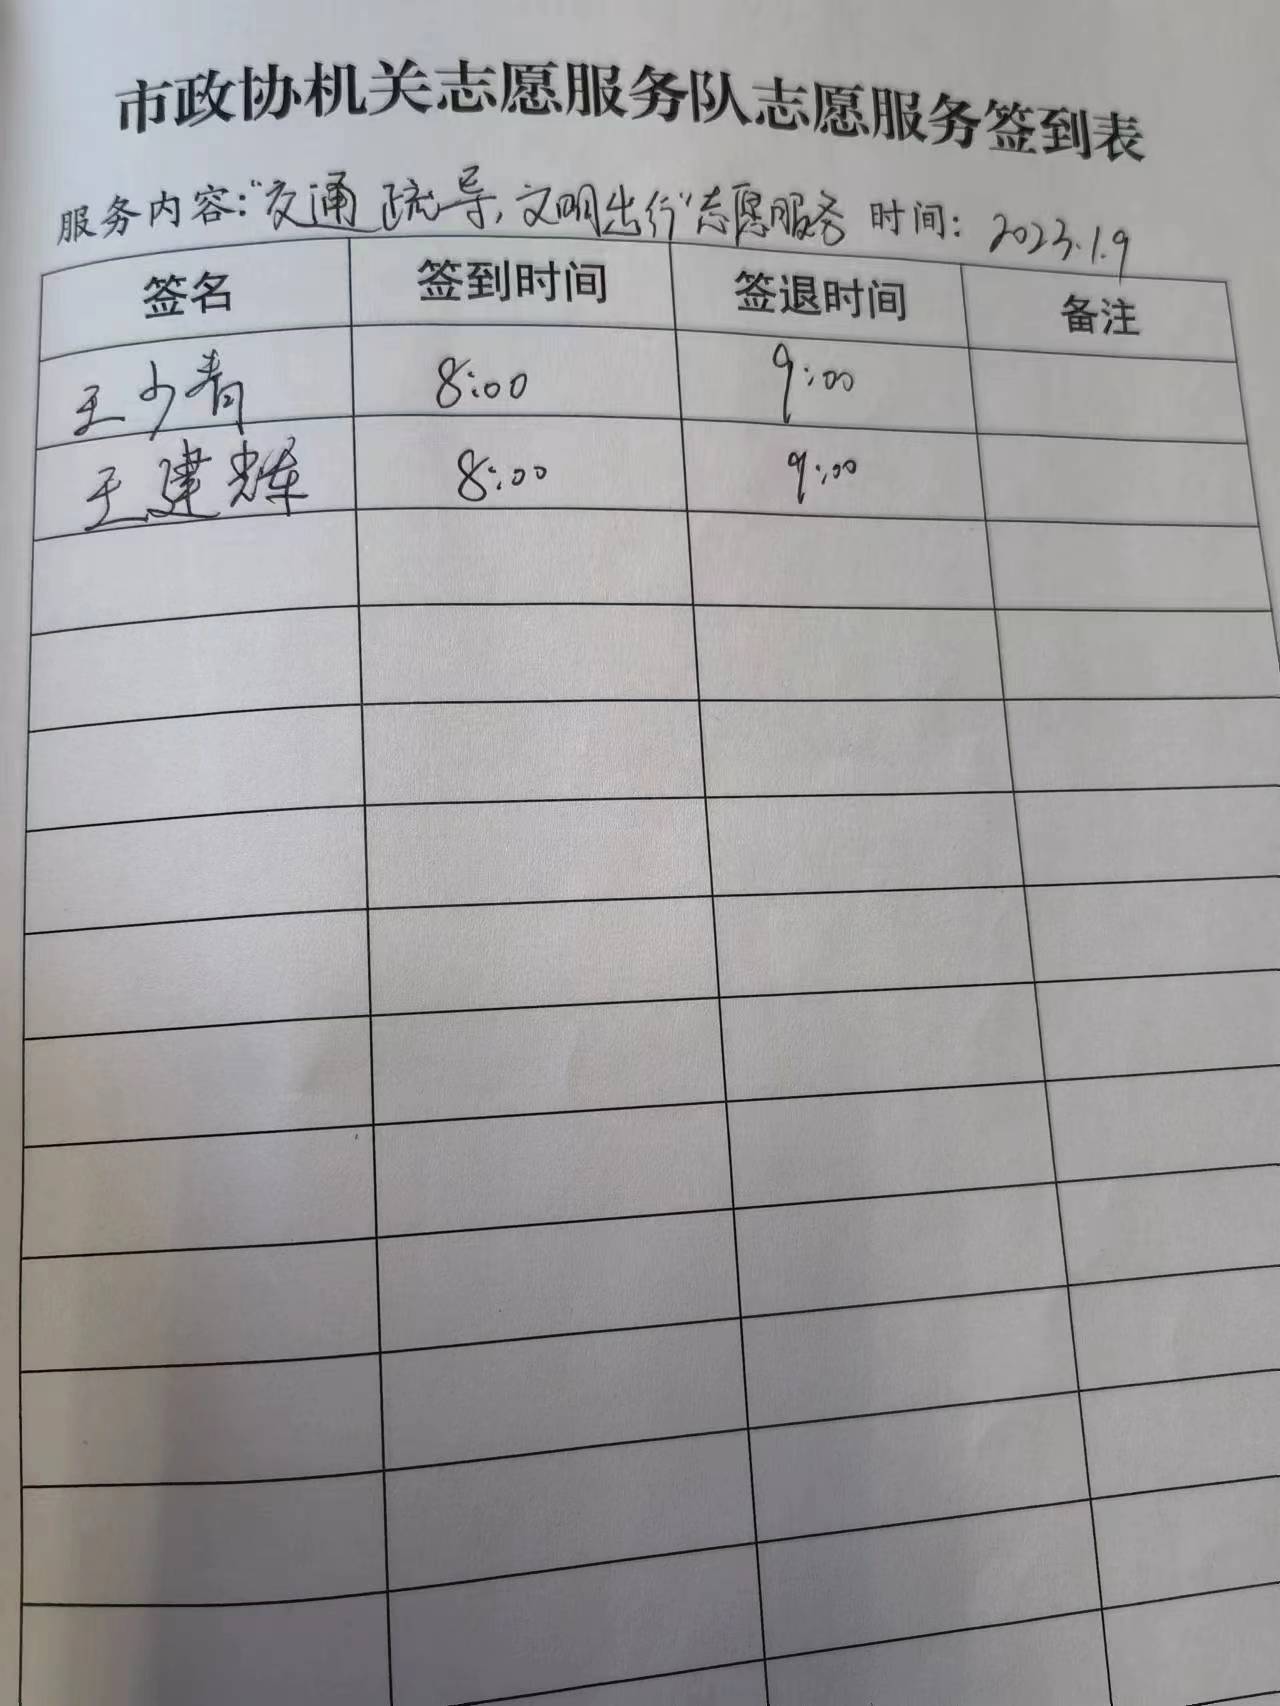 市政协机关志愿服务队志愿服务签到表
服务内容:“交通疏导,文明出行”志愿服务 时间: 2023.1.9
签名 签到时间 签退时间 备注
王少青 8:00 9:00
王建辉 8:00 9:00